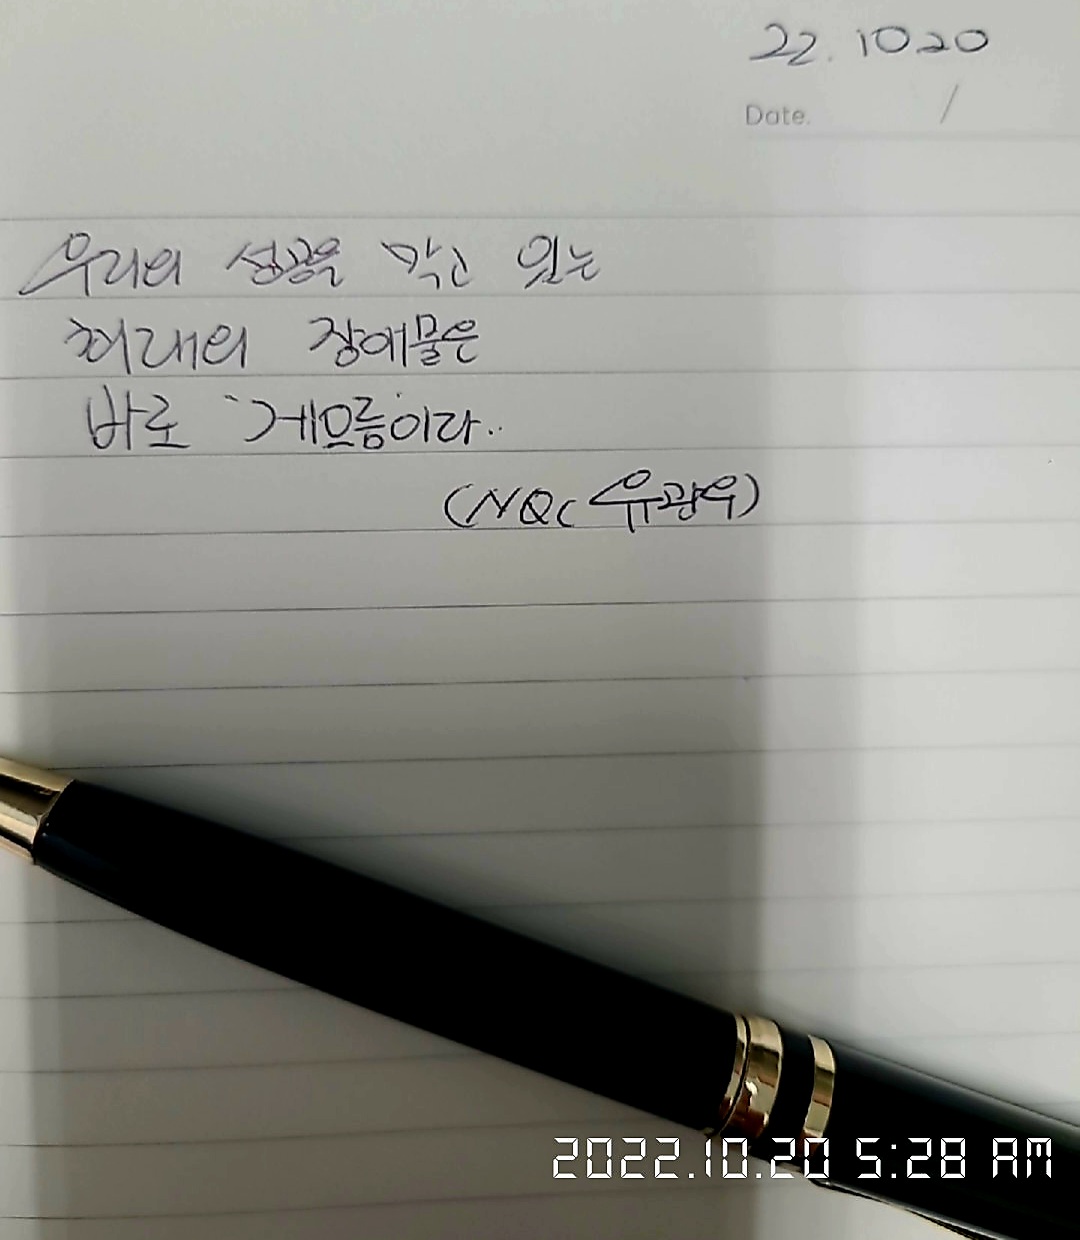 22. 10 20
Date. /
우리의 성공을 막고 있는
최대의 장애물은
바로 게으름이라..
(NQC 유광우)
2022.10.20 5:28 AM